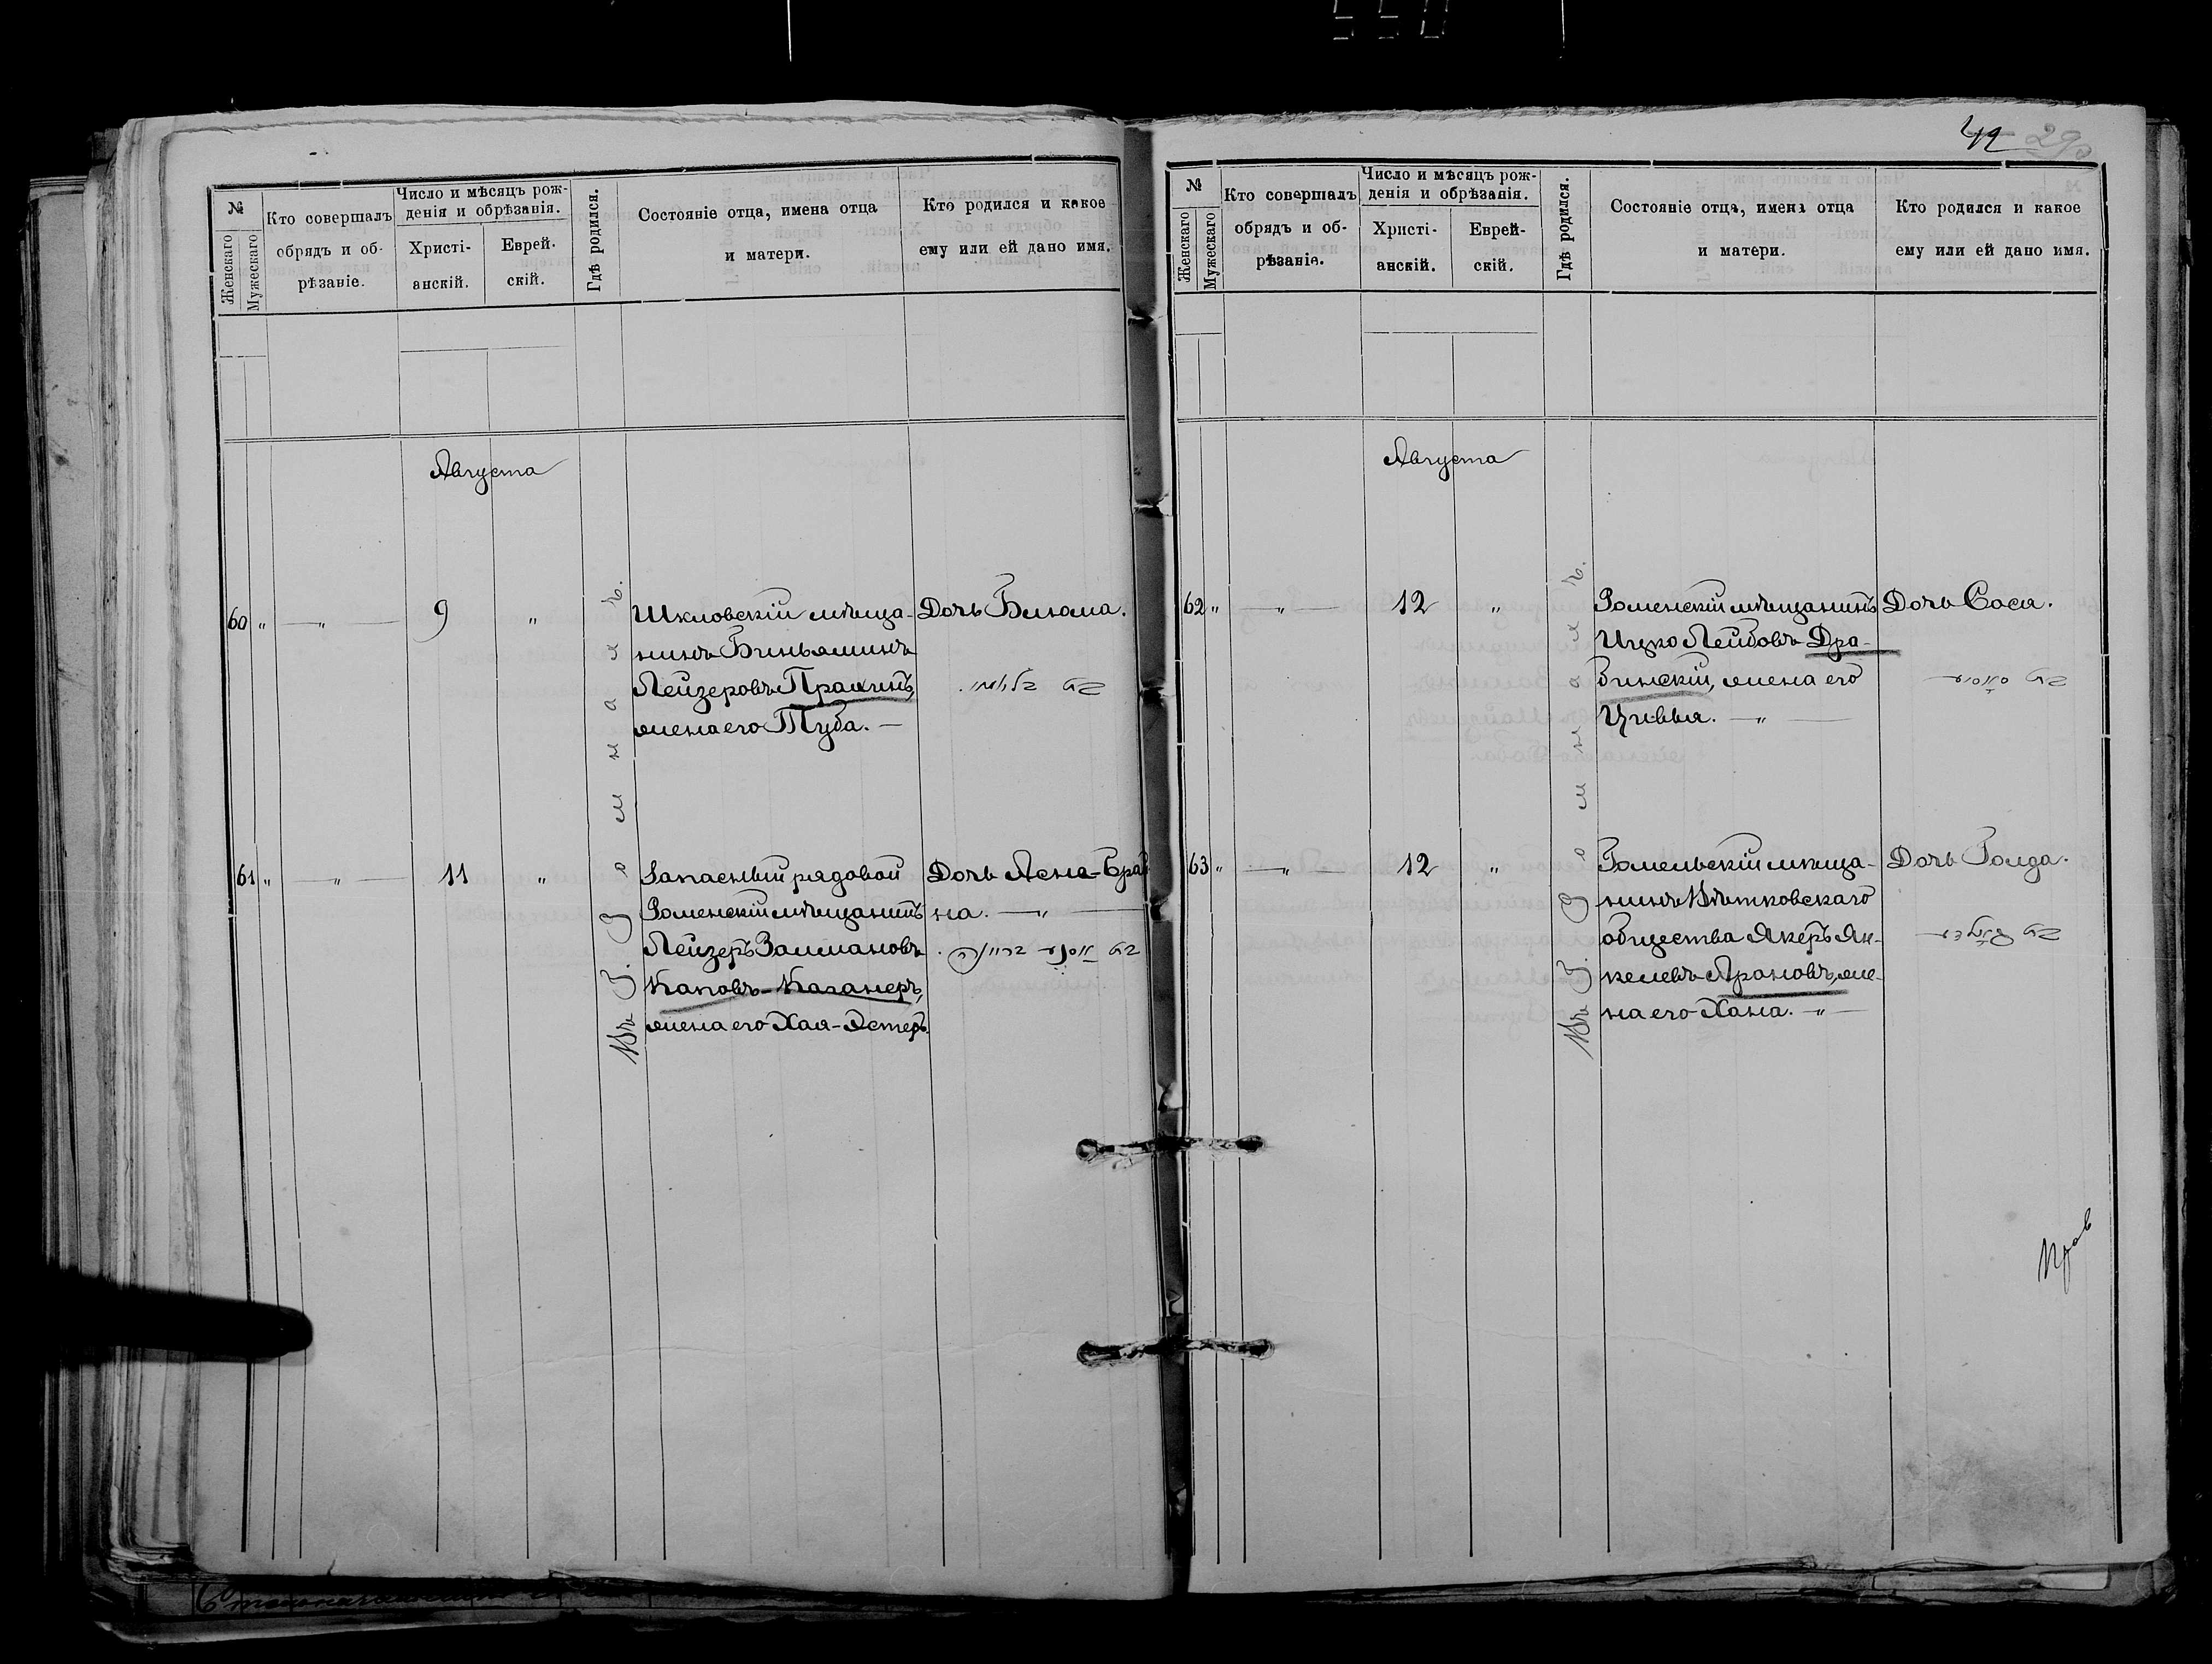 42 29
№
Женскаго
Мужескаго
Кто совершалъ
обрядъ и об-
рѣзаніе.
Число и мѣсяцъ рож-
денія и обрѣзанія.
Христі-
анскій.
Еврей-
скій.
Гдѣ родился.
Состояніе отца, имена отца
и матери.
Кто родился и какое
ему или ей дано имя.
Августа
60 " — " — 9 "
Шкловскій мѣща-
нинъ Биньяминъ
Лейзеровъ Пралинъ,
жена его Туба. —
Дочь Блюма.
61 " — " — 11 "
Запасный рядовой
Роменскій мѣщанинъ
Лейзеръ Залмановъ
Каповъ-Каганеръ,
жена его Хая-Эстеръ.
Дочь Асна-Брай-
на. — " —
Въ г. Ромнахъ.
№
Женскаго
Мужескаго
Кто совершалъ
обрядъ и об-
рѣзаніе.
Число и мѣсяцъ рож-
денія и обрѣзанія.
Христі-
анскій.
Еврей-
скій.
Гдѣ родился.
Состояніе отца, имена отца
и матери.
Кто родился и какое
ему или ей дано имя.
Августа
62 " — " — 12 "
Роменскій мѣщанинъ
Ицко Лейбовъ Дра-
бинскій, жена его
Цивья. — " —
Дочь Сося.
63 " — " — 12 "
Гомельскій мѣща-
нинъ Вѣтковскаго
общества Янкель-
келевъ Ароновъ, же-
на его Хана. — " —
Дочь Голда.
Въ г. Ромнахъ.